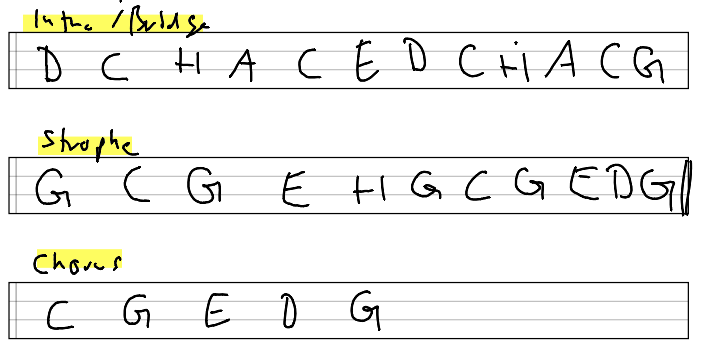 Intro / Bridge
D C H A C E D C H A C G
Strophe
G C G E H G C G E D G
Chorus
C G E D G